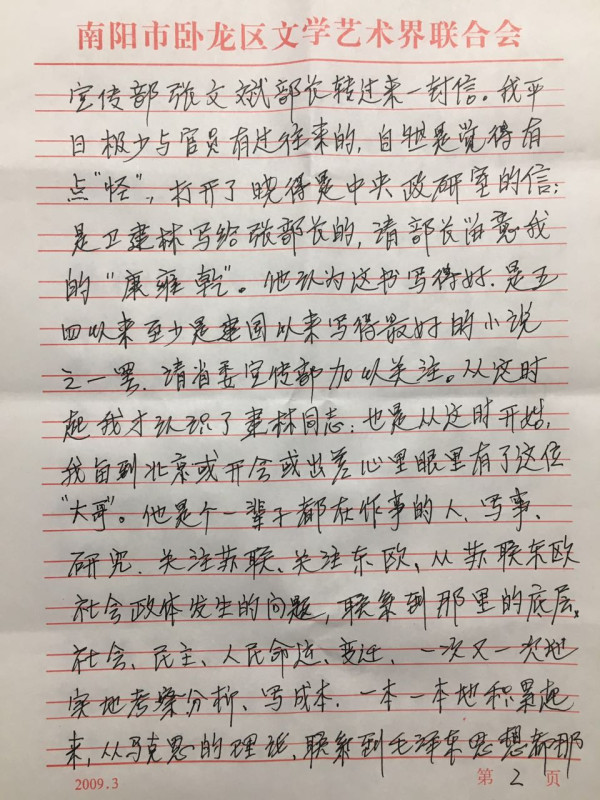 南阳市卧龙区文学艺术界联合会
宣传部张文斌部长转过来一封信。我平
日极少与官员有过往来的，自然是觉得有
点“怪”，打开了晓得是中央政研室的信；
是卫建林写给张部长的，请部长留意我
的“康雍乾”。他认为这书写得好，是五
四以来至少是建国以来写得最好的小说
之一罢，请省委宣传部加以关注。从这时
起我才认识了建林同志；也是从这时开始，
我每到北京或开会或出差心里眼里有了这位
“大哥”。他是个一辈子都在作事的人、写事、
研究、关注苏联、关注东欧，从苏联东欧
社会政体发生的问题，联系到那里的底层、
社会、民主、人民命运、变迁，一次又一次地
实地考察分析、写成本，一本一本地积累起
来，从马克思的理论，联系到毛泽东思想都那
2009.3
第 2 页